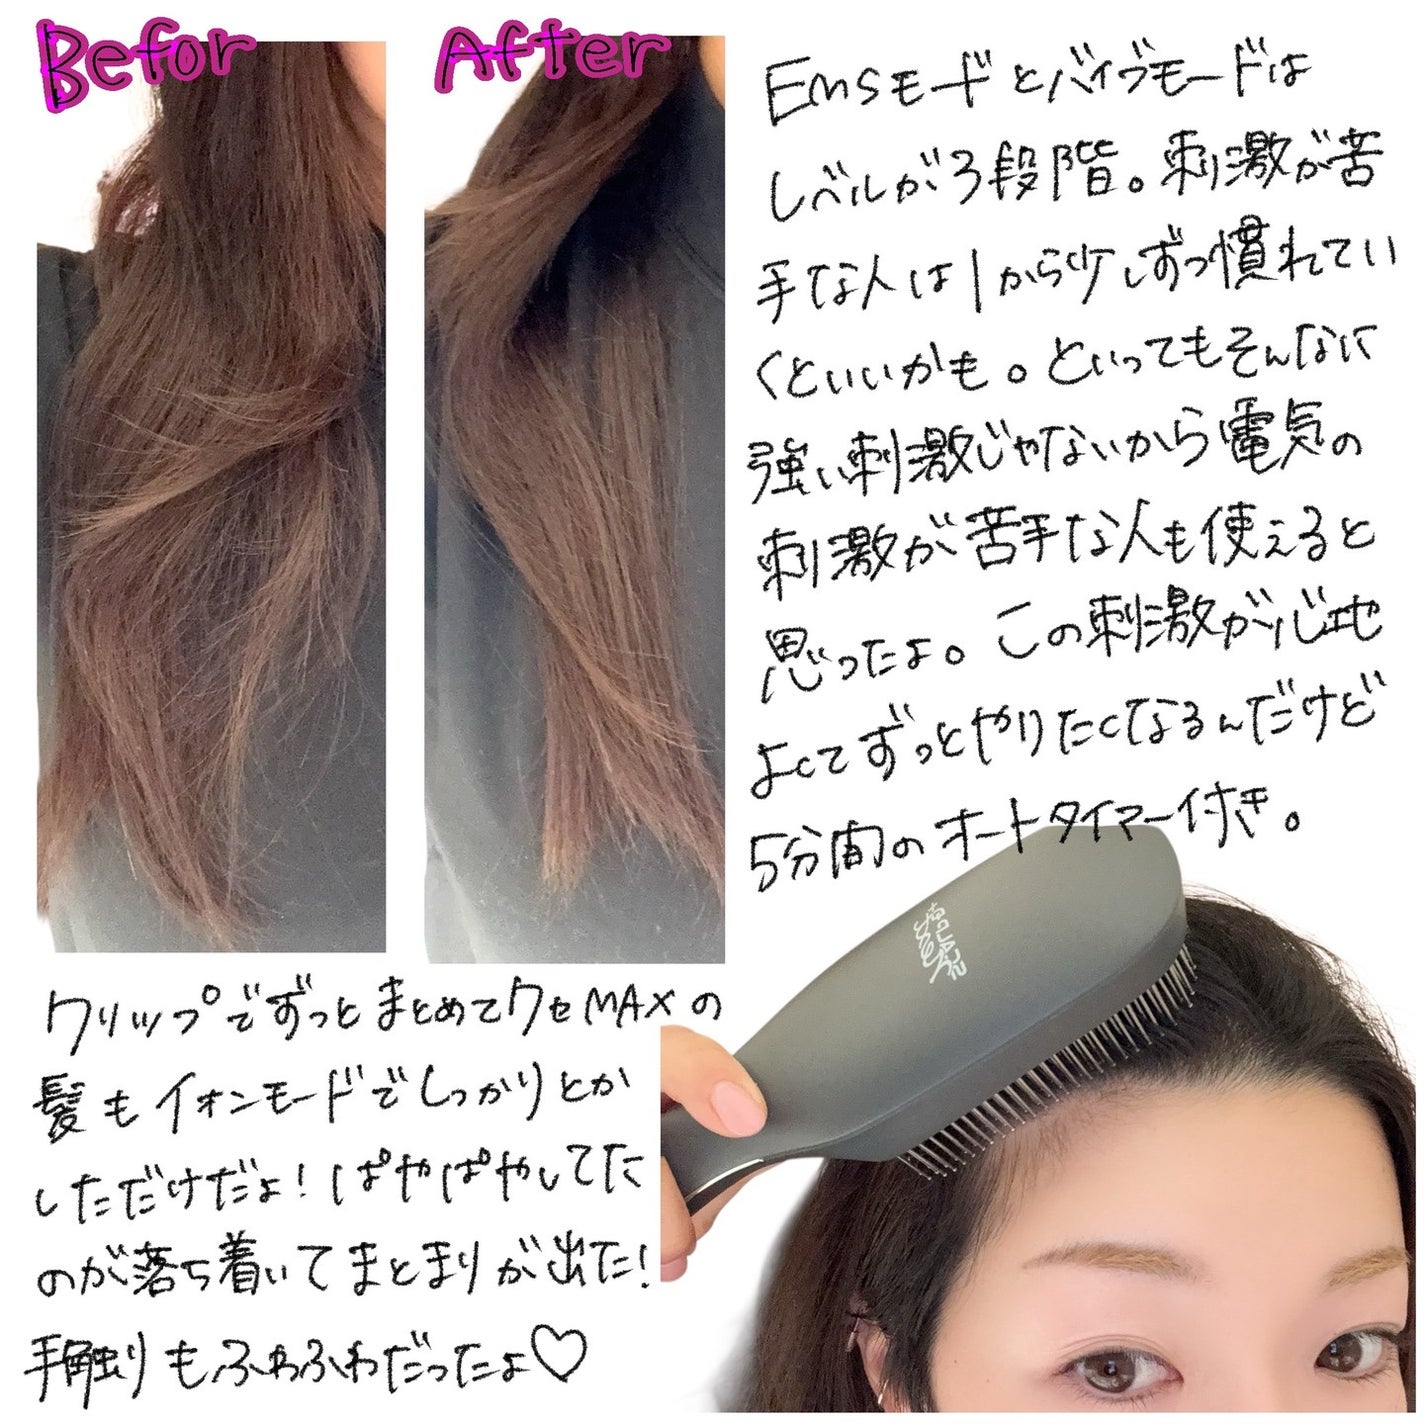 Befor
After
EMSモードとバイブモードは
レベルが3段階。刺激が苦
手な人は1から少しずつ慣れてい
くといいかも。といってもそんなに
強い刺激じゃないから電気の
刺激が苦手な人も使えると
思ったよ。この刺激が心地
よくてずっとやりたくなるんだけど
5分間のオートタイマー付き。
クリップでずっとまとめてクセMAXの
髪もイオンモードでしっかりとか
しただけだよ!ぱやぱやしてた
のが落ち着いてまとまりが出た!
手触りもふわふわだったよ♡